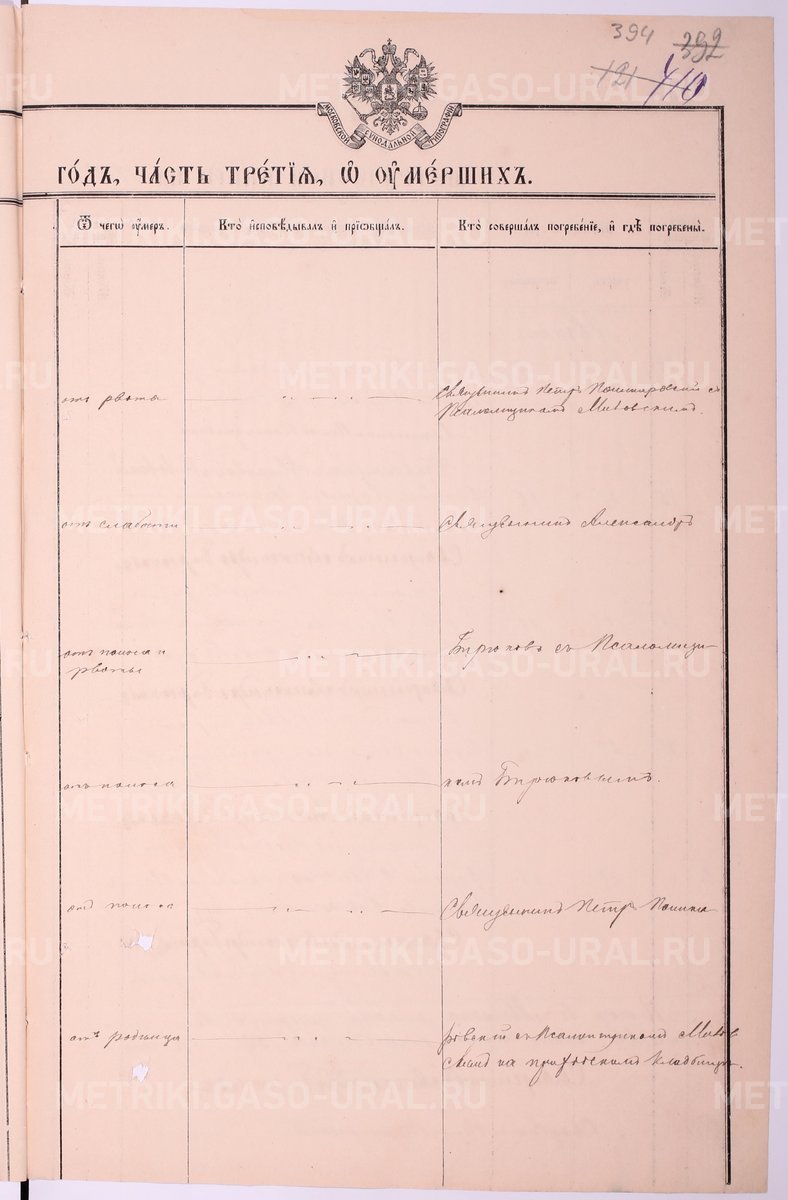 394 392
121 410
МОСКОВСКОЙ СѴНОДАЛЬНОЙ ТИПОГРАФІИ
ГО́ДЪ, ЧА́СТЬ ТРЕ́ТЇѦ, Ѡ҆ ОУ҆МЕ́РШИХЪ.
Ѿ чегѡ̀ оу҆́меръ. | Кто̀ и҆сповѣ́дывалъ и҆ прїѡбща́лъ. | Кто̀ соверша́лъ погребе́нїе, и҆ гдѣ̀ погребены̀.
отъ рвоты
Священникъ Петръ съ
Псаломщикомъ
отъ слабости
Священникъ Александръ
отъ поноса и
рвоты
Бирюковъ съ Псаломщи
отъ поноса
комъ Бирюковымъ.
отъ поноса
Священникъ Петръ
отъ родимца
ровскій съ Псаломщикомъ
на приходскомъ кладбищѣ.
METRIKI.GASO-URAL.RU